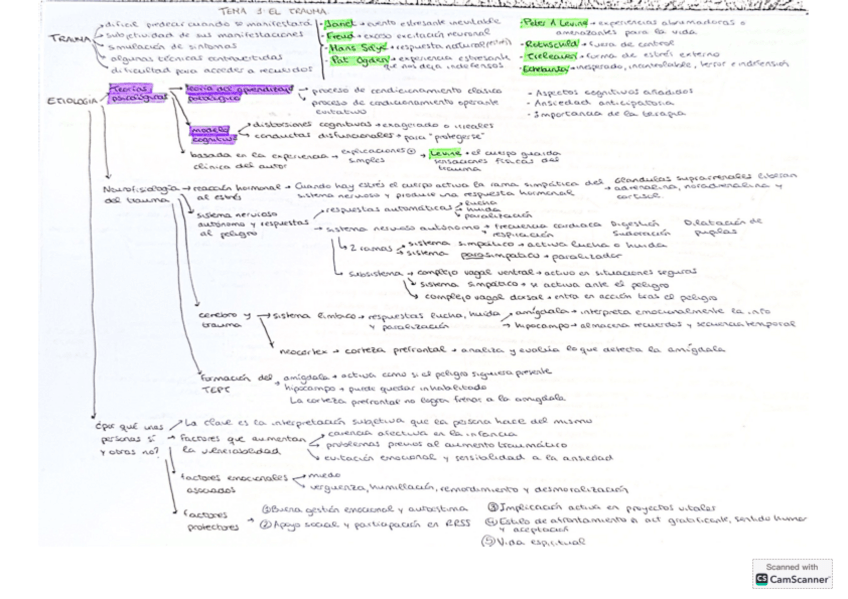 TEMA 1: EL TRAUMA
TRAUMA
dificil predecir cuando se manifestará
subjetividad de sus manifestaciones
simulación de síntomas
algunas técnicas controvertidas
dificultad para acceder a recuerdos
· Janet → evento estresante inevitable
· Freud → exceso excitación neuronal
· Hans Seye → respuesta natural
· Pat Ogden → experiencia estresante que nos deja indefensos
· Peter A Levine → experiencias abrumadoras o amenazantes para la vida
· Rothschild → fuera de control
→ forma de estrés externo
· Echeburúa → inesperado, incontrolable, terror e indefensión
ETIOLOGÍA
Teorías psicológicas
teoría del aprendizaje patológico
proceso de condicionamiento clásico
proceso de condicionamiento operante evitativo
- Aspectos cognitivos añadidos
- Ansiedad anticipatoria
- Importancia de la terapia
modelo cognitivo
distorsiones cognitivas → exagerado o irreales
conductas disfuncionales → para "protegerse"
basada en la experiencia clínica del autor → explicaciones + simples → Levine → el cuerpo guarda sensaciones físicas del trauma
Neurofisiología del trauma → reacción hormonal al estrés → Cuando hay estrés el cuerpo activa la rama simpática del sistema nervioso y produce una respuesta hormonal
Glándulas suprarrenales liberan adrenalina, noradrenalina y cortisol.
sistema nervioso autónomo y respuestas al peligro
respuestas automáticas
lucha
huida
paralización
sistema nervioso autónomo → frecuencia cardiaca
respiración
Digestión
sudoración
Dilatación de pupilas
2 ramas
sistema simpático → activa lucha o huida
sistema parasimpático → paralizador
subsistema → complejo vagal ventral → activo en situaciones seguras
sistema simpático → se activa ante el peligro
complejo vagal dorsal → entra en acción tras el peligro
cerebro y trauma
sistema límbico → respuestas lucha, huida y paralización
amígdala → interpreta emocionalmente la info
hipocampo → almacena recuerdos y secuencia temporal
neocortex → corteza prefrontal → analiza y evalúa lo que detecta la amígdala
formación del TEPT
amígdala → activa como si el peligro siguiera presente
hipocampo → puede quedar inhabilitado
La corteza prefrontal no logra frenar a la amígdala
¿Por qué unas personas sí y otras no?
La clave es la interpretación subjetiva que la persona hace del mismo
Factores que aumentan la vulnerabilidad
carencia afectiva en la infancia
problemas previos al aumento traumático
evitación emocional y sensibilidad a la ansiedad
factores emocionales asociados
miedo
vergüenza, humillación, remordimiento y desmoralización
factores protectores
① Buena gestión emocional y autoestima
② Apoyo social y participación en RRSS
③ Implicación activa en proyectos vitales
④ Estilo de afrontamiento act gratificante, sentido humor y aceptación
⑤ Vida espiritual
Scanned with
CS CamScanner